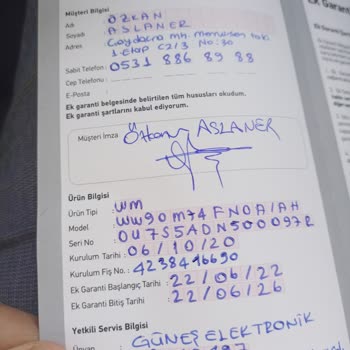 Müşteri Bilgisi
Adı : ÖZKAN
Soyadı : ASLANER
Adres
1. Etap C2/3 No: 30
Sabit Telefon : 0531 886 89 88
Cep Telefonu :
E-Posta :
Ek garanti belgesinde belirtilen tüm hususları okudum.
Ek garanti şartlarını kabul ediyorum.
Müşteri İmza Özkan ASLANER
Ürün Bilgisi
Ürün Tipi : WM
Model : WW90M74FN0A/AH
Seri No : 0U7S5ADN500097R
Kurulum Tarihi : 06/10/20
Kurulum Fiş No. : 4238416690
Ek Garanti Başlangıç Tarihi : 22/06/22
Ek Garanti Bitiş Tarihi : 22/06/26
Yetkili Servis Bilgisi
GÜNEŞ ELEKTRONİK